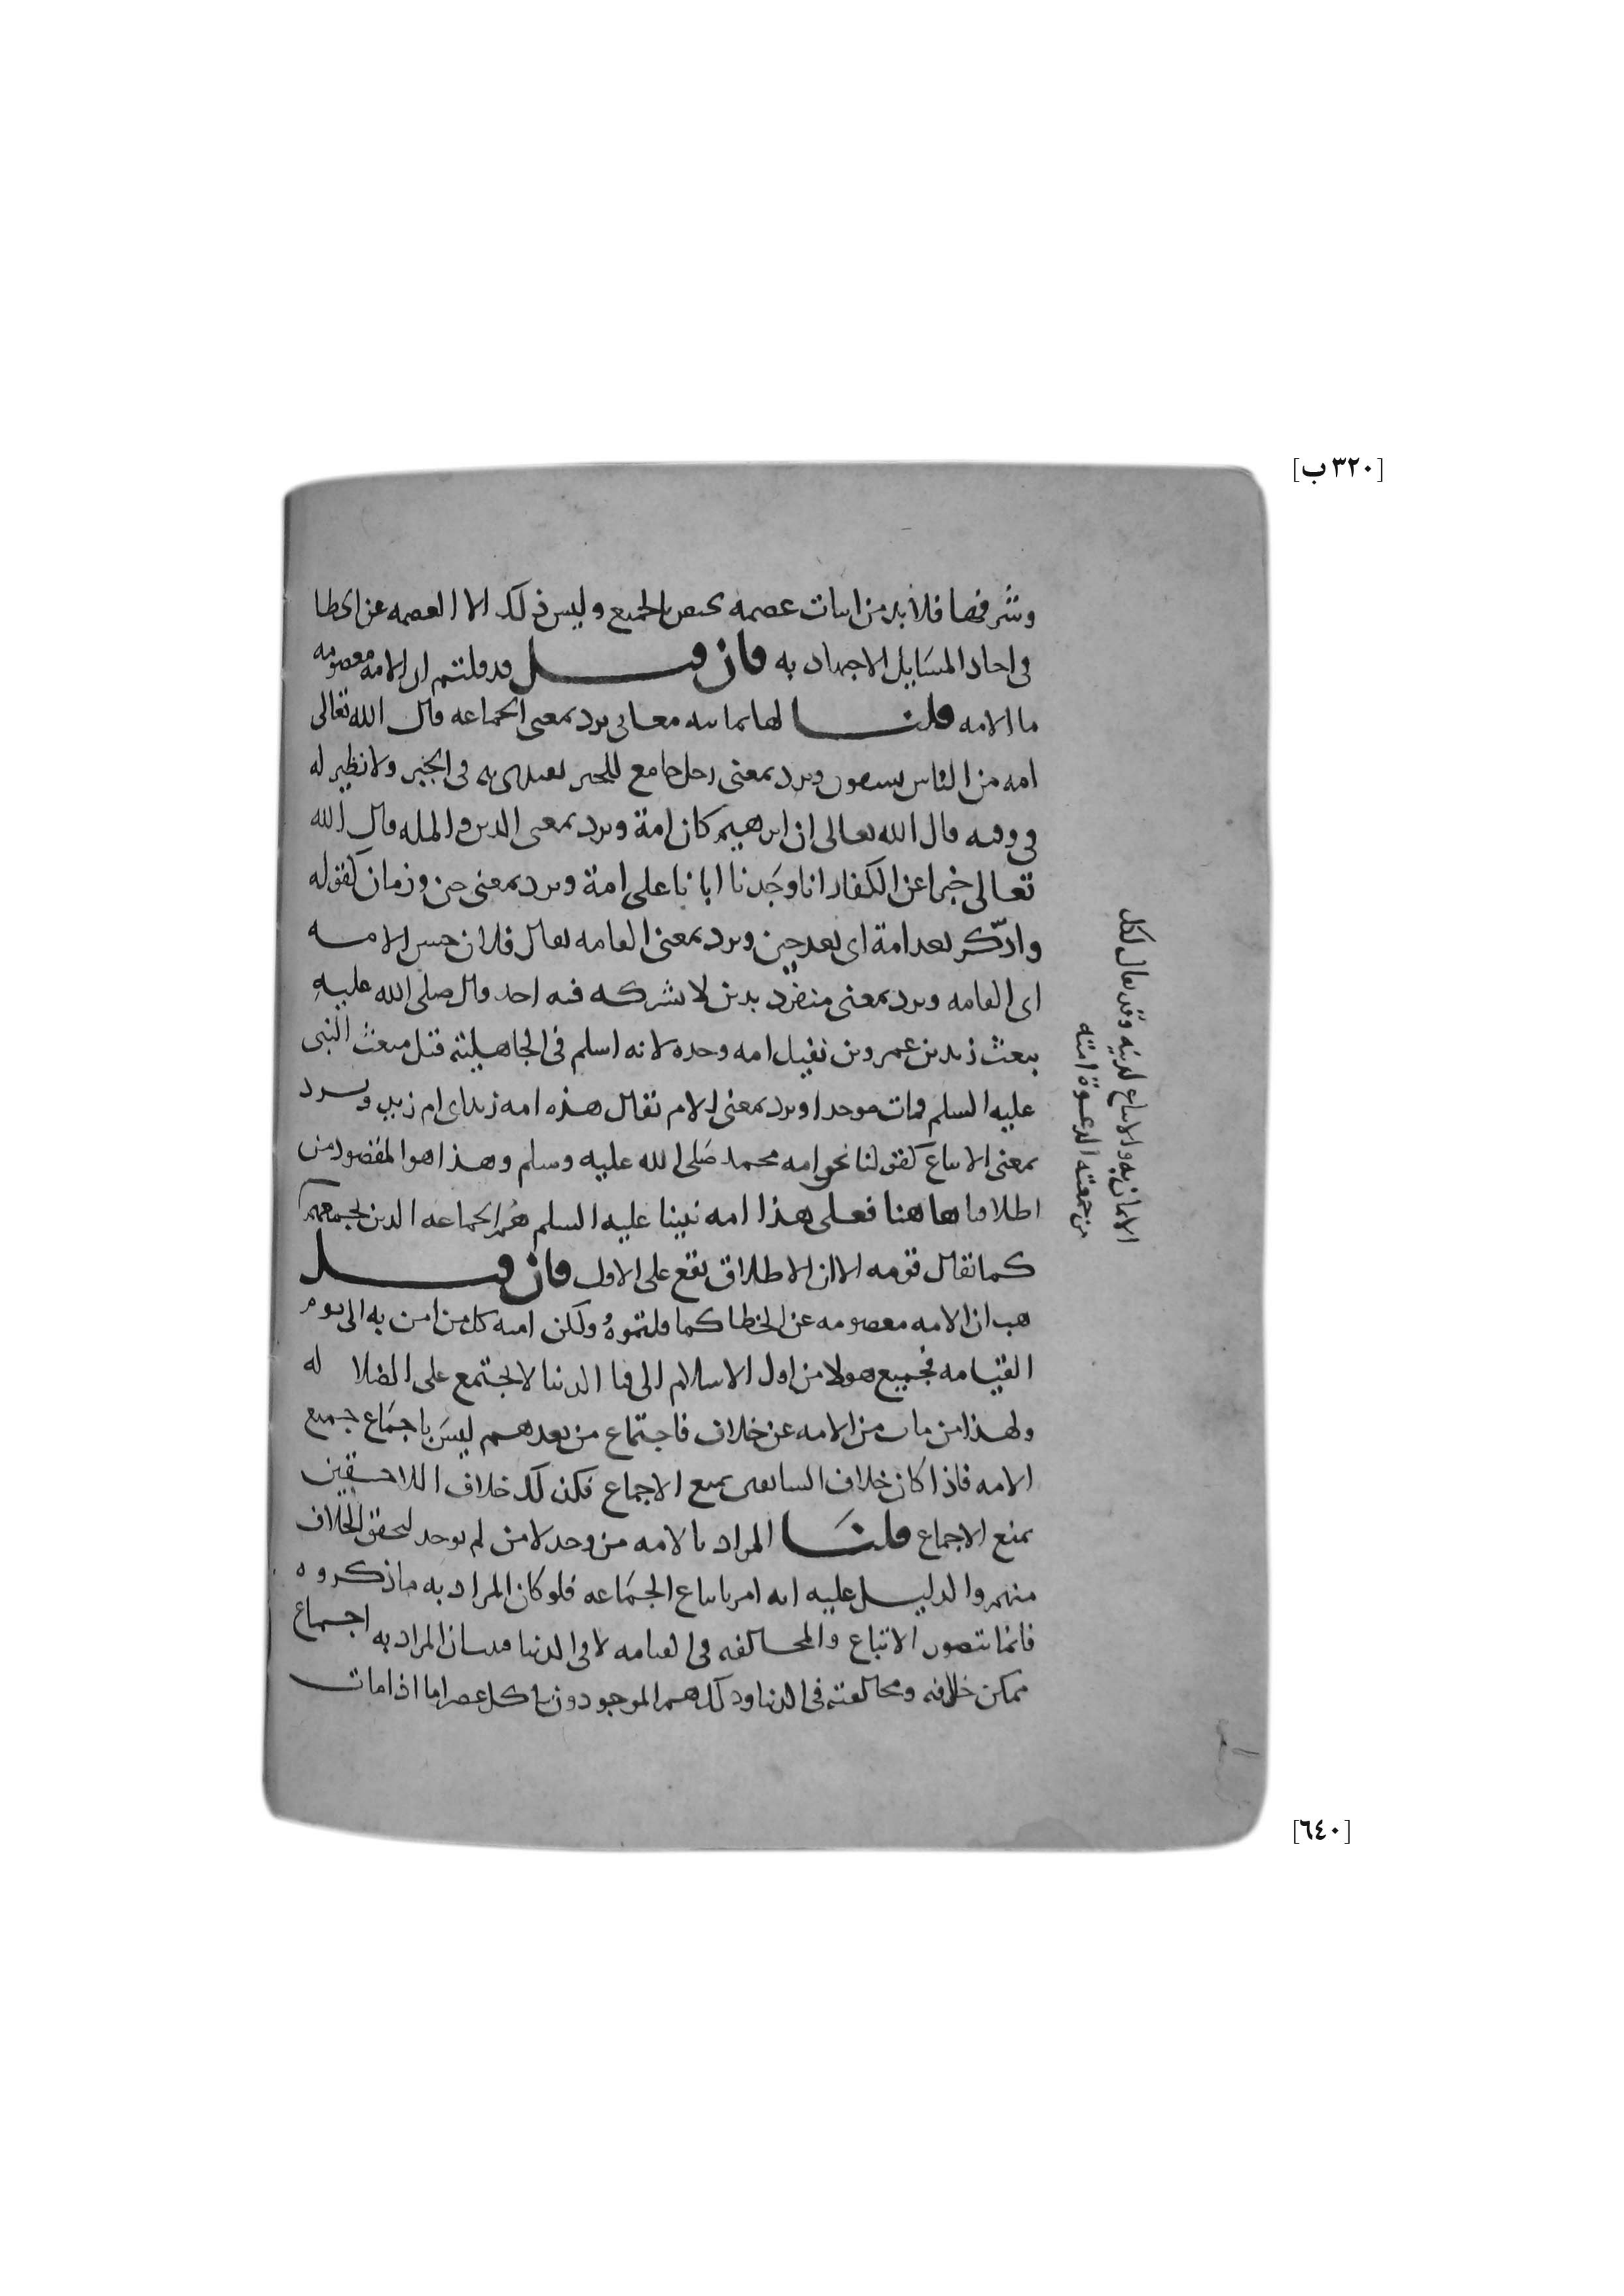 [٣٢٠ ب]
وشرفها فلا بد من اثبات عصمه تختص بالجميع وليس ذلك الا العصمه عن الخطا
في احاد المسايل الاجتهاديه فان قيل قد قلتم ان الامه معصومه
ما الامه قلنا لها ثمانيه معاني يرد بمعنى الجماعه قال الله تعالى
امه من الناس يسقون ويرد بمعنى رجل جامع للخير يقتدى به في الخير ولا نظير له
في وقته قال الله تعالى ان ابرهيم كان امة ويرد بمعنى الدين والمله قال الله
تعالى خبرا عن الكفار انا وجدنا ابانا على امة ويرد بمعنى حين وزمان كقوله
وادّكر بعد امة اى بعد حين ويرد بمعنى القامه يقال فلان حسن الامه
اى القامه ويرد بمعنى منفرد بدين لا يشركه فيه احد قال صلى الله عليه
يبعث زيد بن عمرو بن نفيل امه وحده لانه اسلم في الجاهلية قبل مبعث النبى
عليه السلم فمات موحدا ويرد بمعنى الام يقال هذه امه زيد اى ام زيد ويرد
بمعنى الاتباع كقولنا نحن امه محمد صلى الله عليه وسلم وهذا هو المقصود من
اطلاقنا هاهنا فعلى هذا امه نبينا عليه السلم هم الجماعه الذين يجمعهم
الايمان به والاتباع لدينه وقد يقال لكل
من جمعته الدعوة امته
كما يقال قومه الا ان الاطلاق يقع على الاول فان قيل
هب ان الامه معصومه عن الخطا كما قلتموه ولكن امته كل من امن به الى يوم
القيامه فجميع هولا من اول الاسلام الى فنا الدنيا لا يجتمع على الضلاله
ولهذا من مات من الامه عن خلاف فاجتماع من بعدهم ليس باجماع جميع
الامه فاذا كان خلاف السابقين يمنع الاجماع فكذلك خلاف اللاحقين
يمنع الاجماع قلنا المراد بالامه من وجد لا من لم يوجد ليحقق الخلاف
منهم والدليل عليه انه امر باتباع الجماعه فلو كان المراد به ما ذكروه
فانما يتصور الاتباع والمخالفه في القيامه لا في الدنيا فبان ان المراد به اجماع
ممكن خلافه ومخالفته في الدنيا وذلك هم الموجودون في كل عصر اما اذا مات
[٦٤٠]